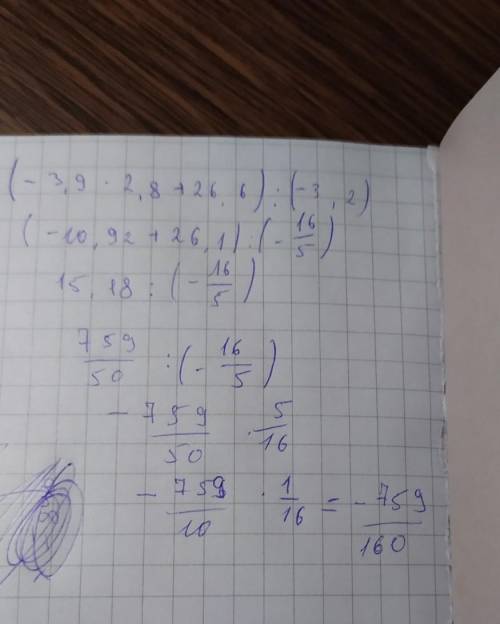 (-3,9 · 2,8 + 26,6) : (-3,2)
(-10,92 + 26,1) : (-16/5)
15,18 : (-16/5)
759/50 : (-16/5)
-759/50 · 5/16
-759/10 · 1/16 = -759/160